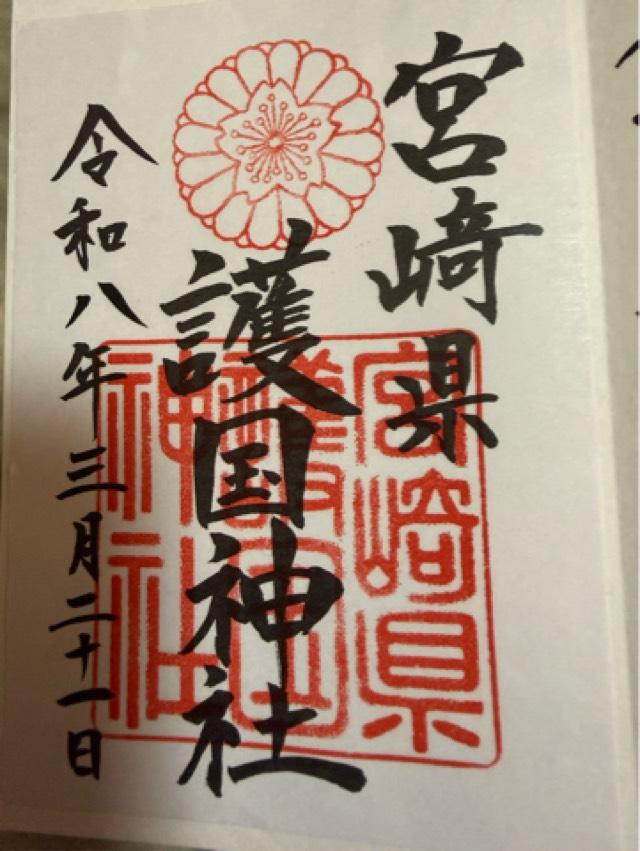 宮﨑県
護国神社
令和八年三月二十一日
宮崎県
護国
神社